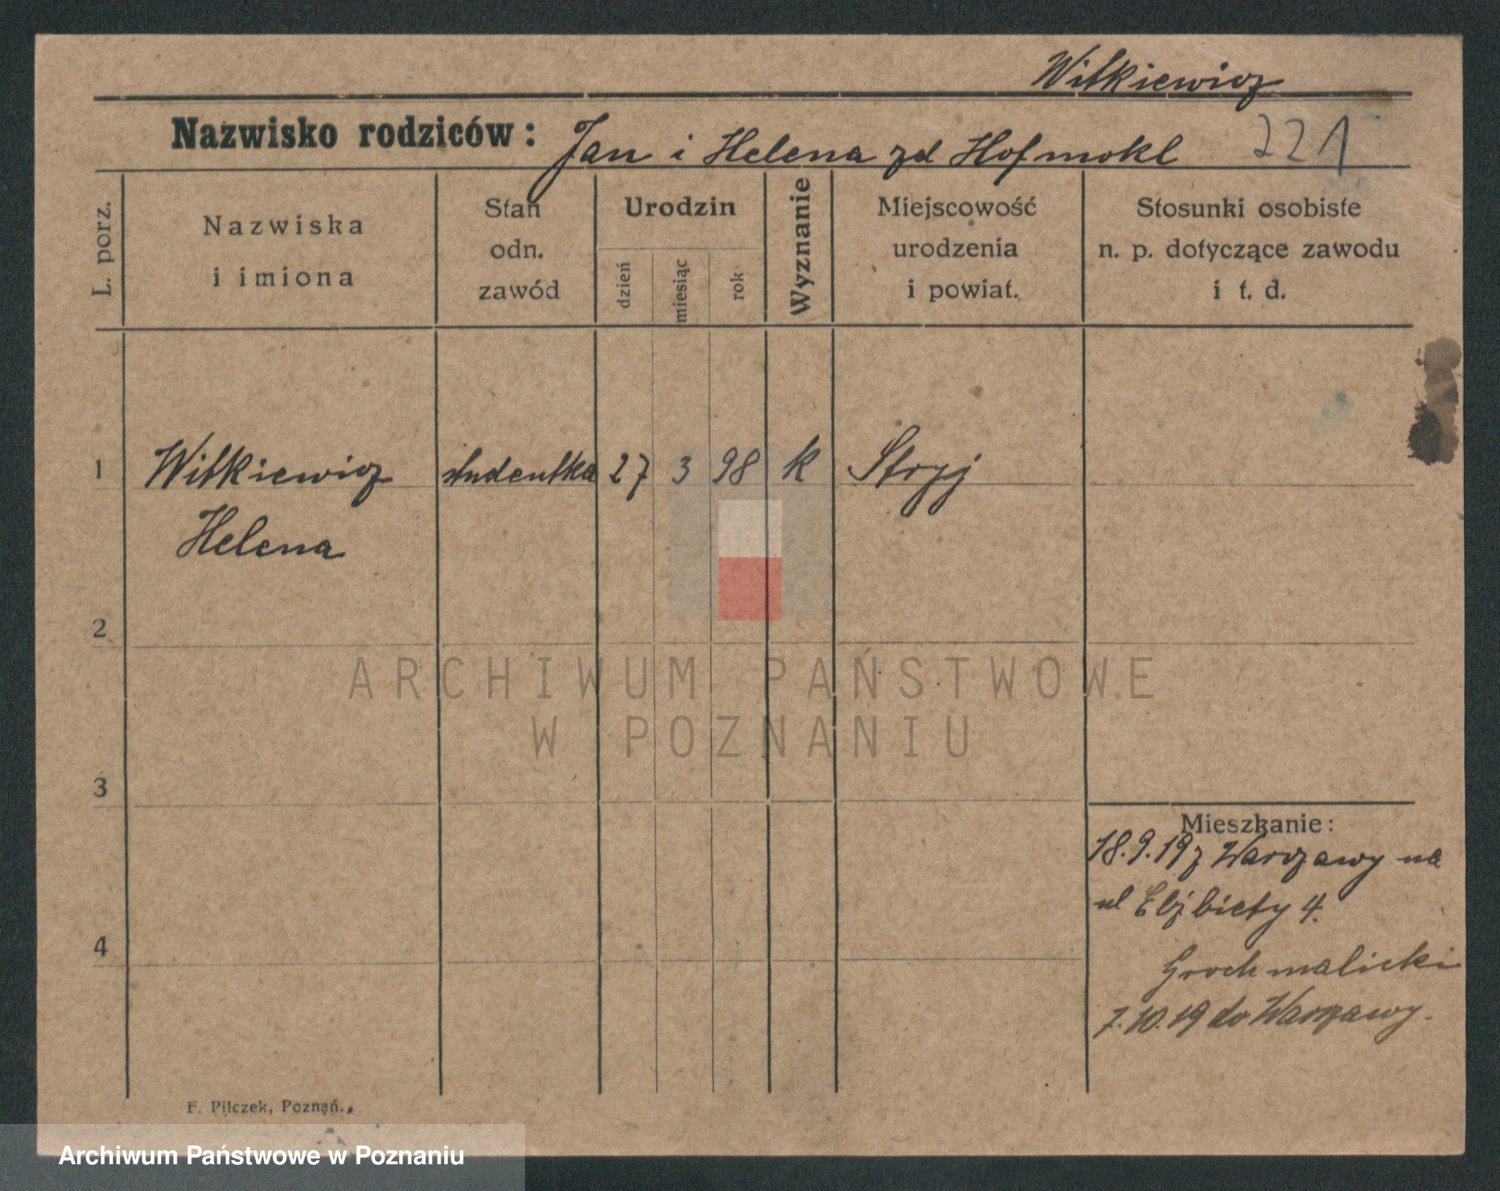 Witkiewicz
Nazwisko rodziców: Jan i Helena zd Hofmokl 221
L. porz.
Nazwiska
i imiona
Stan
odn.
zawód
Urodzin
dzień
miesiąc
rok
Wyznanie
Miejscowość
urodzenia
i powiat.
Stosunki osobiste
n. p. dotyczące zawodu
i t. d.
1 Witkiewicz studentka 27 3 98 k Stryj
Helena
2
ARCHIWUM PAŃSTWOWE
W POZNANIU
3
Mieszkanie:
18.9.19 z Warszawy na
ul Elżbiety 4.
4
Grochmalicki
7.10.19 do Warszawy.
F. Pilczek, Poznań.
Archiwum Państwowe w Poznaniu